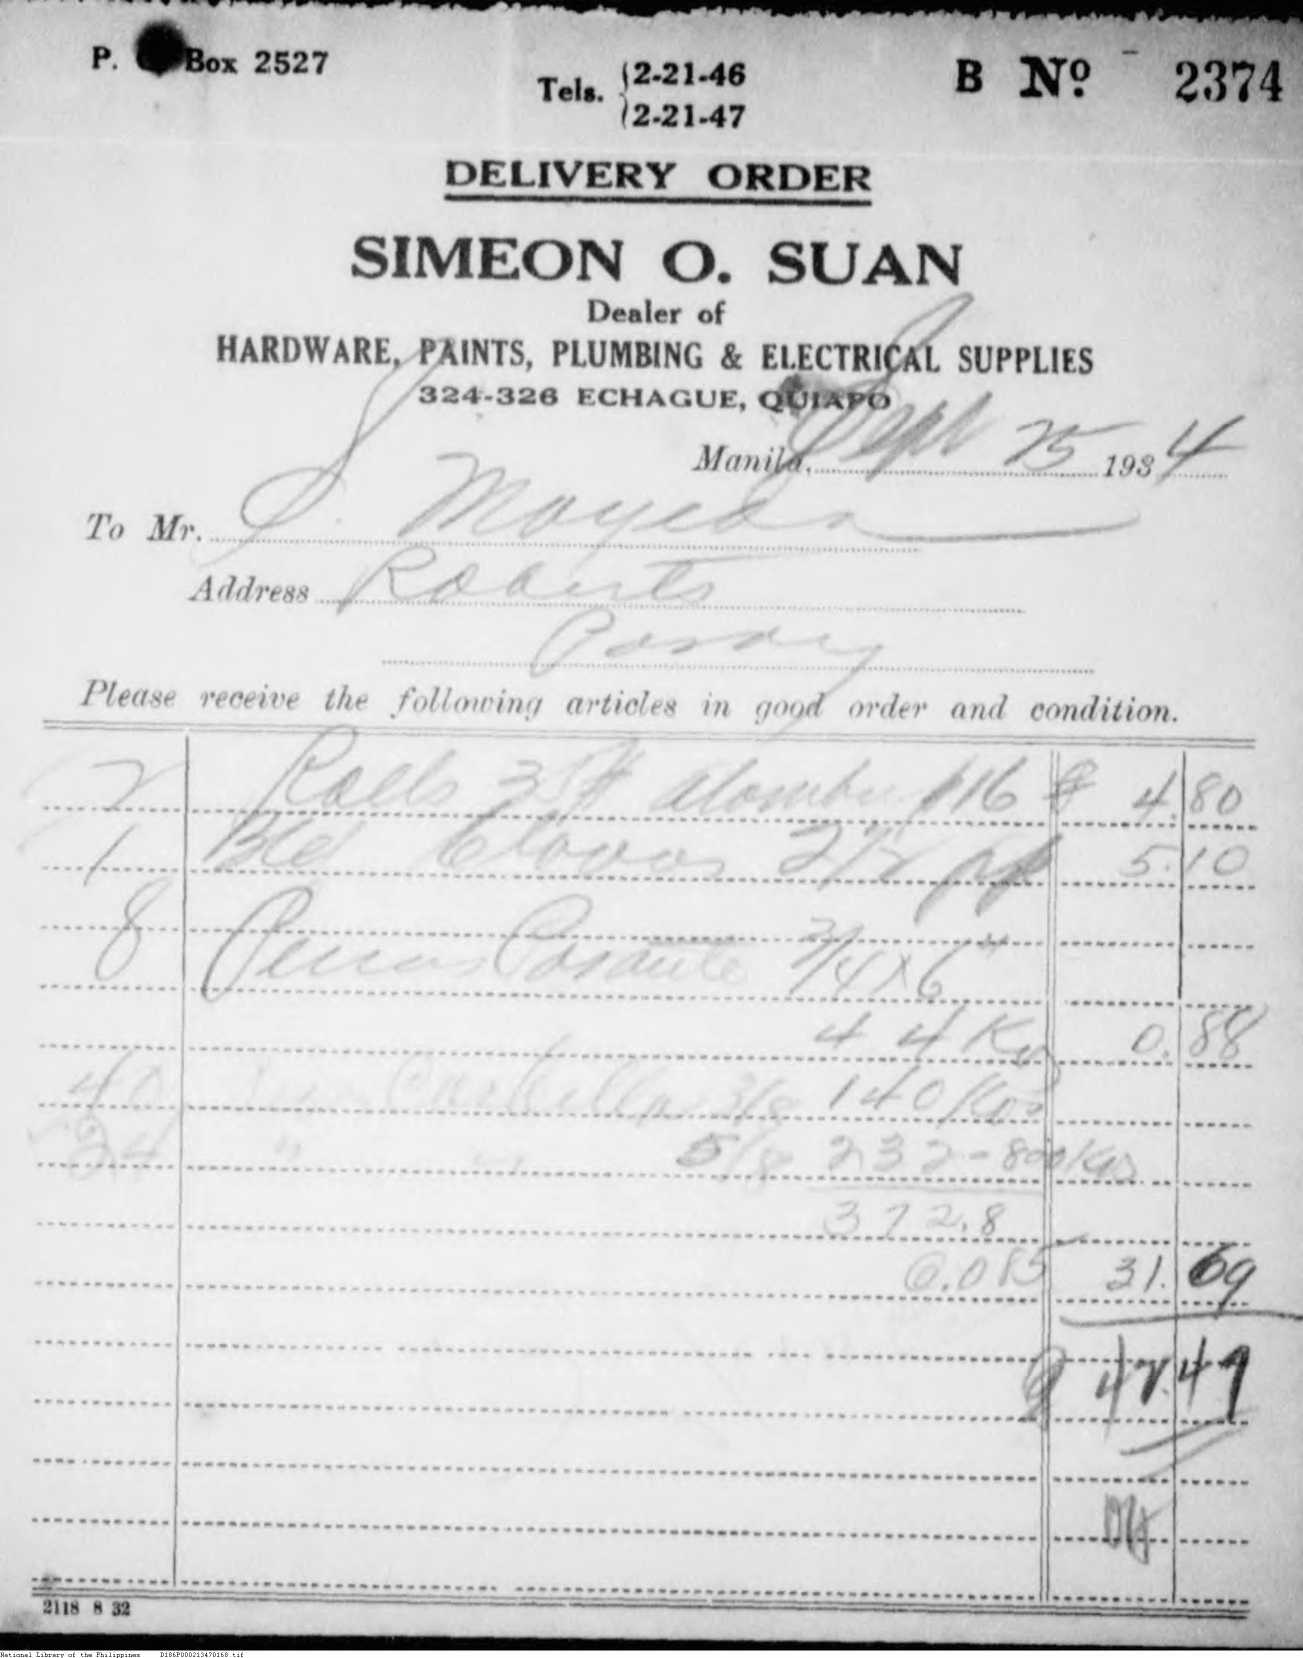 P. Box 2527
Tels. 2-21-46
2-21-47
B No. 2374
DELIVERY ORDER
SIMEON O. SUAN
Dealer of
HARDWARE, PAINTS, PLUMBING & ELECTRICAL SUPPLIES
324-326 ECHAGUE, QUIAPO
Manila, Sept 25 1934
To Mr.
Address Roberts
Pasay
Please receive the following articles in good order and condition.
2 Rolls alambre #16 4.80
1 Bld Clavos 2 1/2 5.10
8 3/4 x 6"
44 Ks 0.88
40 3/8 140 Kos
24 " " 5/8 232-800 Kgs
372.8
@.085 31.69
42.47
2118 8 32
National Library of the Philippines D186P000213470168.tif